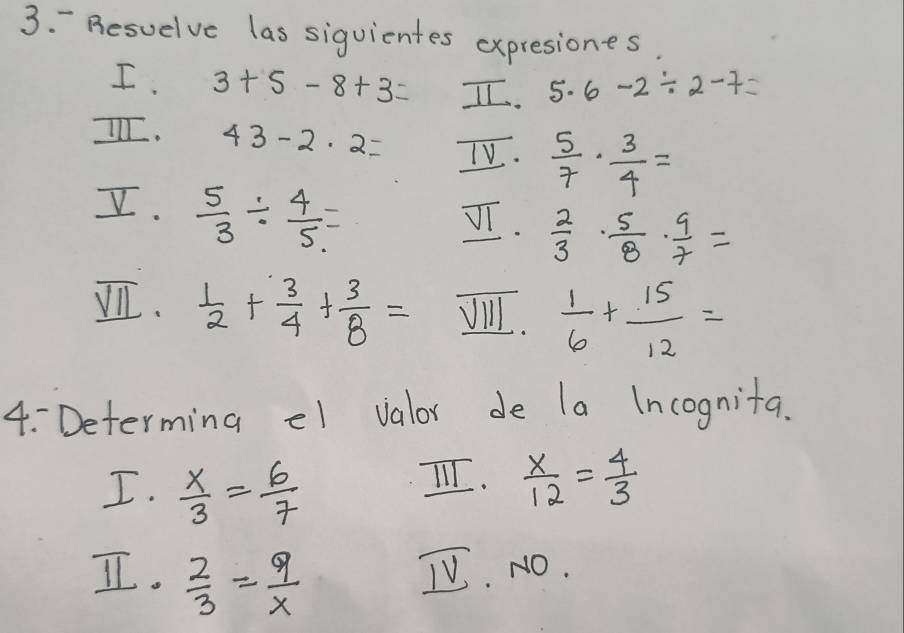 3.- Resuelve las siguientes expresiones.
I. 3+5-8+3= II. 5·6-2÷2-7=
III. 43-2·2= IV. 5/7 · 3/4 =
V. 5/3 ÷ 4/5 = VI. 2/3 · 5/8 · 9/7 =
VII. 1/2 + 3/4 + 3/8 = VIII. 1/6 + 15/12 =
4.- Determina el valor de la Incognita.
I. x/3 = 6/7 III. x/12 = 4/3
II. 2/3 = 9/x IV. NO.